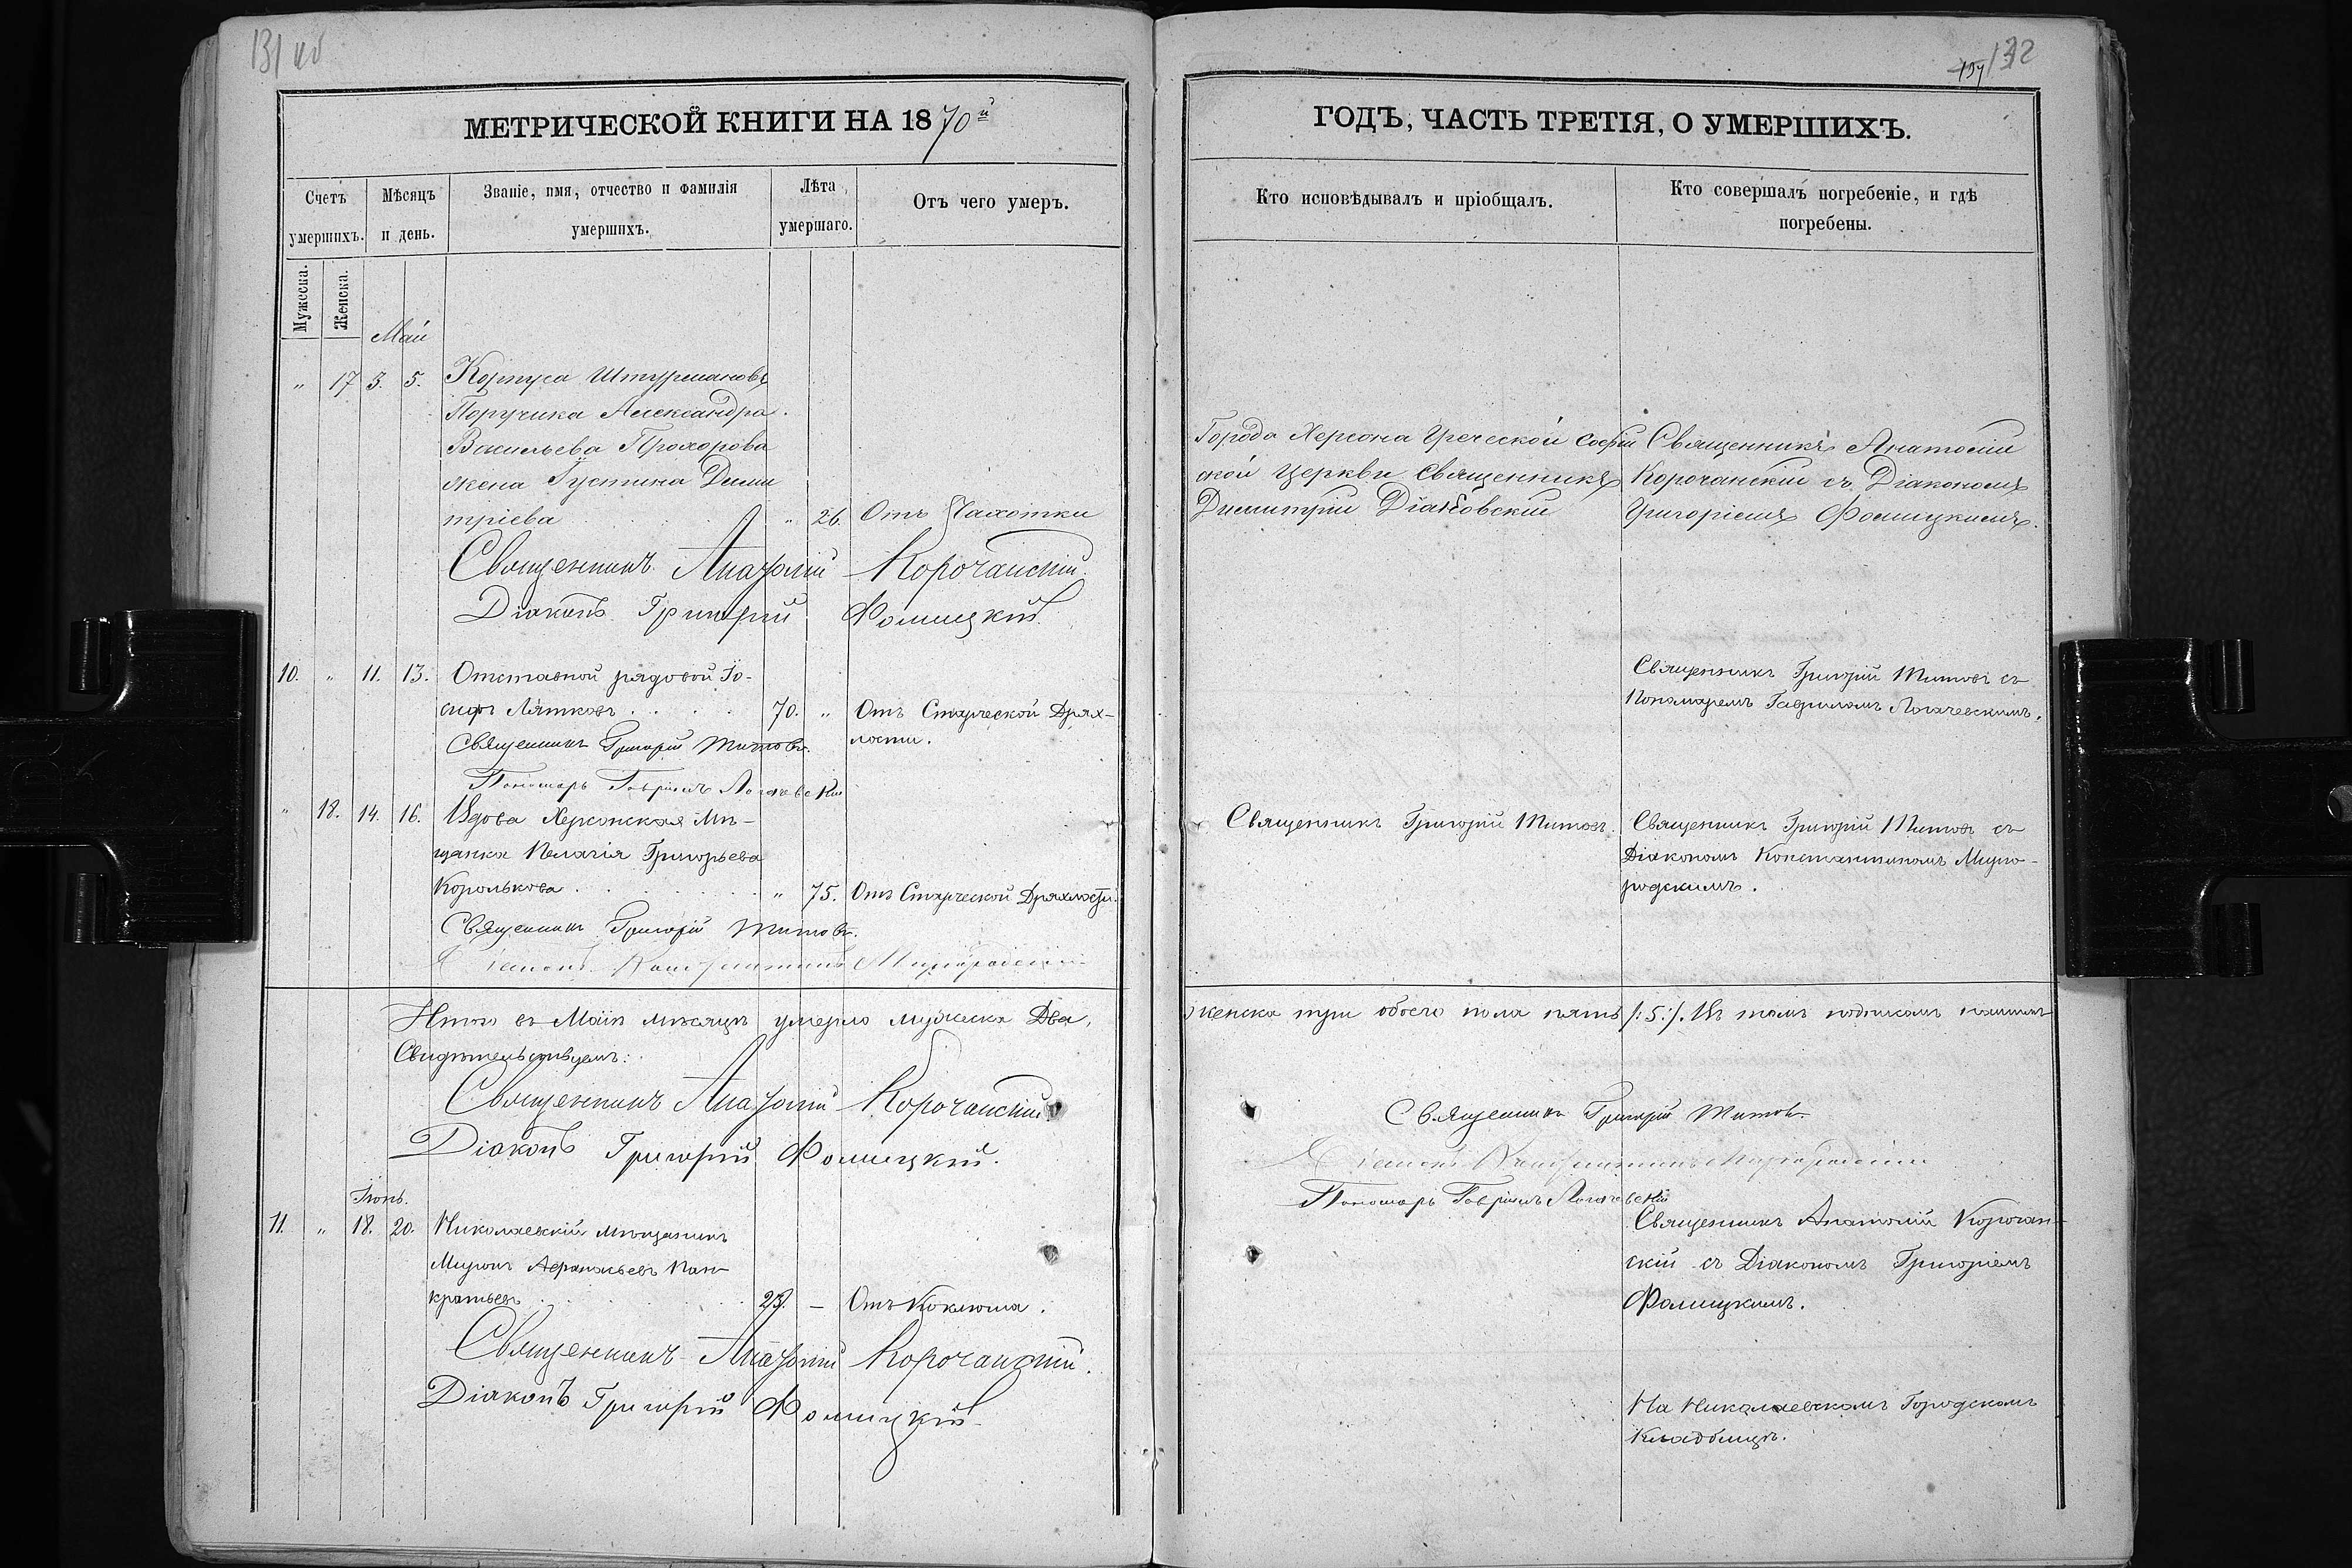 131 об
МЕТРИЧЕСКОЙ КНИГИ НА 1870й
Счетъ умершихъ.
Мужеска.
Женска.
Мѣсяцъ и день.
Званіе, имя, отчество и фамилія
умершихъ.
Лѣта
умершаго.
Отъ чего умеръ.
Май
" 17 3. 5. Корпуса Штурмановъ
Поручика Александра
Васильева Прохорова
жена Іустина Дими
тріева " 26. Отъ Чахотки
Священникъ Анатолій Корочанскій.
Діаконъ Григорій Фомицкій.
10. " 11. 13. Отставной рядовой Іо-
сифъ Лятковъ . . . . 70. " Отъ Старческой Дрях-
лости.
Священникъ Григорій Титовъ.
Пономарь Гавріилъ Логачевскій
" 18. 14. 16. Вдова Херсонская Мѣ-
щанка Пелагія Григорьева
Королькова . . . . " 75. Отъ Старческой Дряхлости.
Священникъ Григорій Титовъ.
Діаконъ Константинъ Миргородскій
Итого въ Маѣ мѣсяцѣ умерло мужеска Два,
Свидѣтельствуемъ:
Священникъ Анатолій Корочанскій.
Діаконъ Григорій Фомицкій.
Іюнь.
11. " 18. 20. Николаевскій мѣщанинъ
Миронъ Афанасьевъ Пан-
кратьевъ . . . . — Отъ Коклюша.
Священникъ Анатолій Корочанскій.
Діаконъ Григорій Фомицкій
132
ГОДЪ, ЧАСТЬ ТРЕТІЯ, О УМЕРШИХЪ.
Кто исповѣдывалъ и пріобщалъ.
Кто совершалъ погребеніе, и гдѣ
погребены.
Города Херсона Греческой Софій
ской церкви Священникъ
Димитрій
Священникъ Анатолій
Корочанскій съ Діакономъ
Григоріемъ Фомицкимъ.
Священникъ Григорій Титовъ съ
Пономаремъ Гавріиломъ Логачевскимъ.
Священникъ Григорій Титовъ.
Священникъ Григорій Титовъ съ
Діакономъ Константиномъ Мирго-
родскимъ.
женска три обоего пола пять /:5:/. Въ томъ подписомъ нашимъ
Священникъ Григорій Титовъ.
Діаконъ Константинъ Миргородскій
Пономарь Гавріилъ Логачевскій
Священникъ Анатолій Корочан-
скій съ Діакономъ Григоріемъ
Фомицкимъ.
На Николаевскомъ Городскомъ
Кладбищѣ.